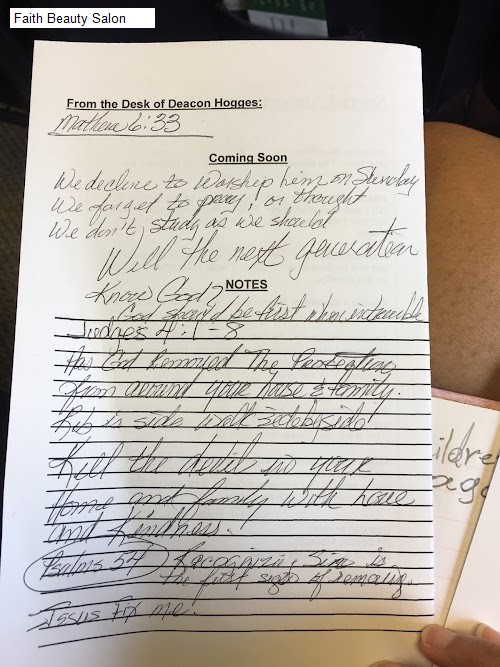 Faith Beauty Salon
From the Desk of Deacon Hogges:
Mathew 6:33
Coming Soon
We decline to Worship him on Sunday
We forget to pray, or thought
We don't study as we should
Will the next generation
NOTES
Know God?
God should be first when in trouble
Judges 4:1-8
Has God Removed The Protection
from around your house & family.
Rib in side walk side by side
Kill the devil in your
Home and family with love
and Kindness.
Psalms 54 Recognizing Sins is
the first sign of
Jesus Fix me.
ildre
age